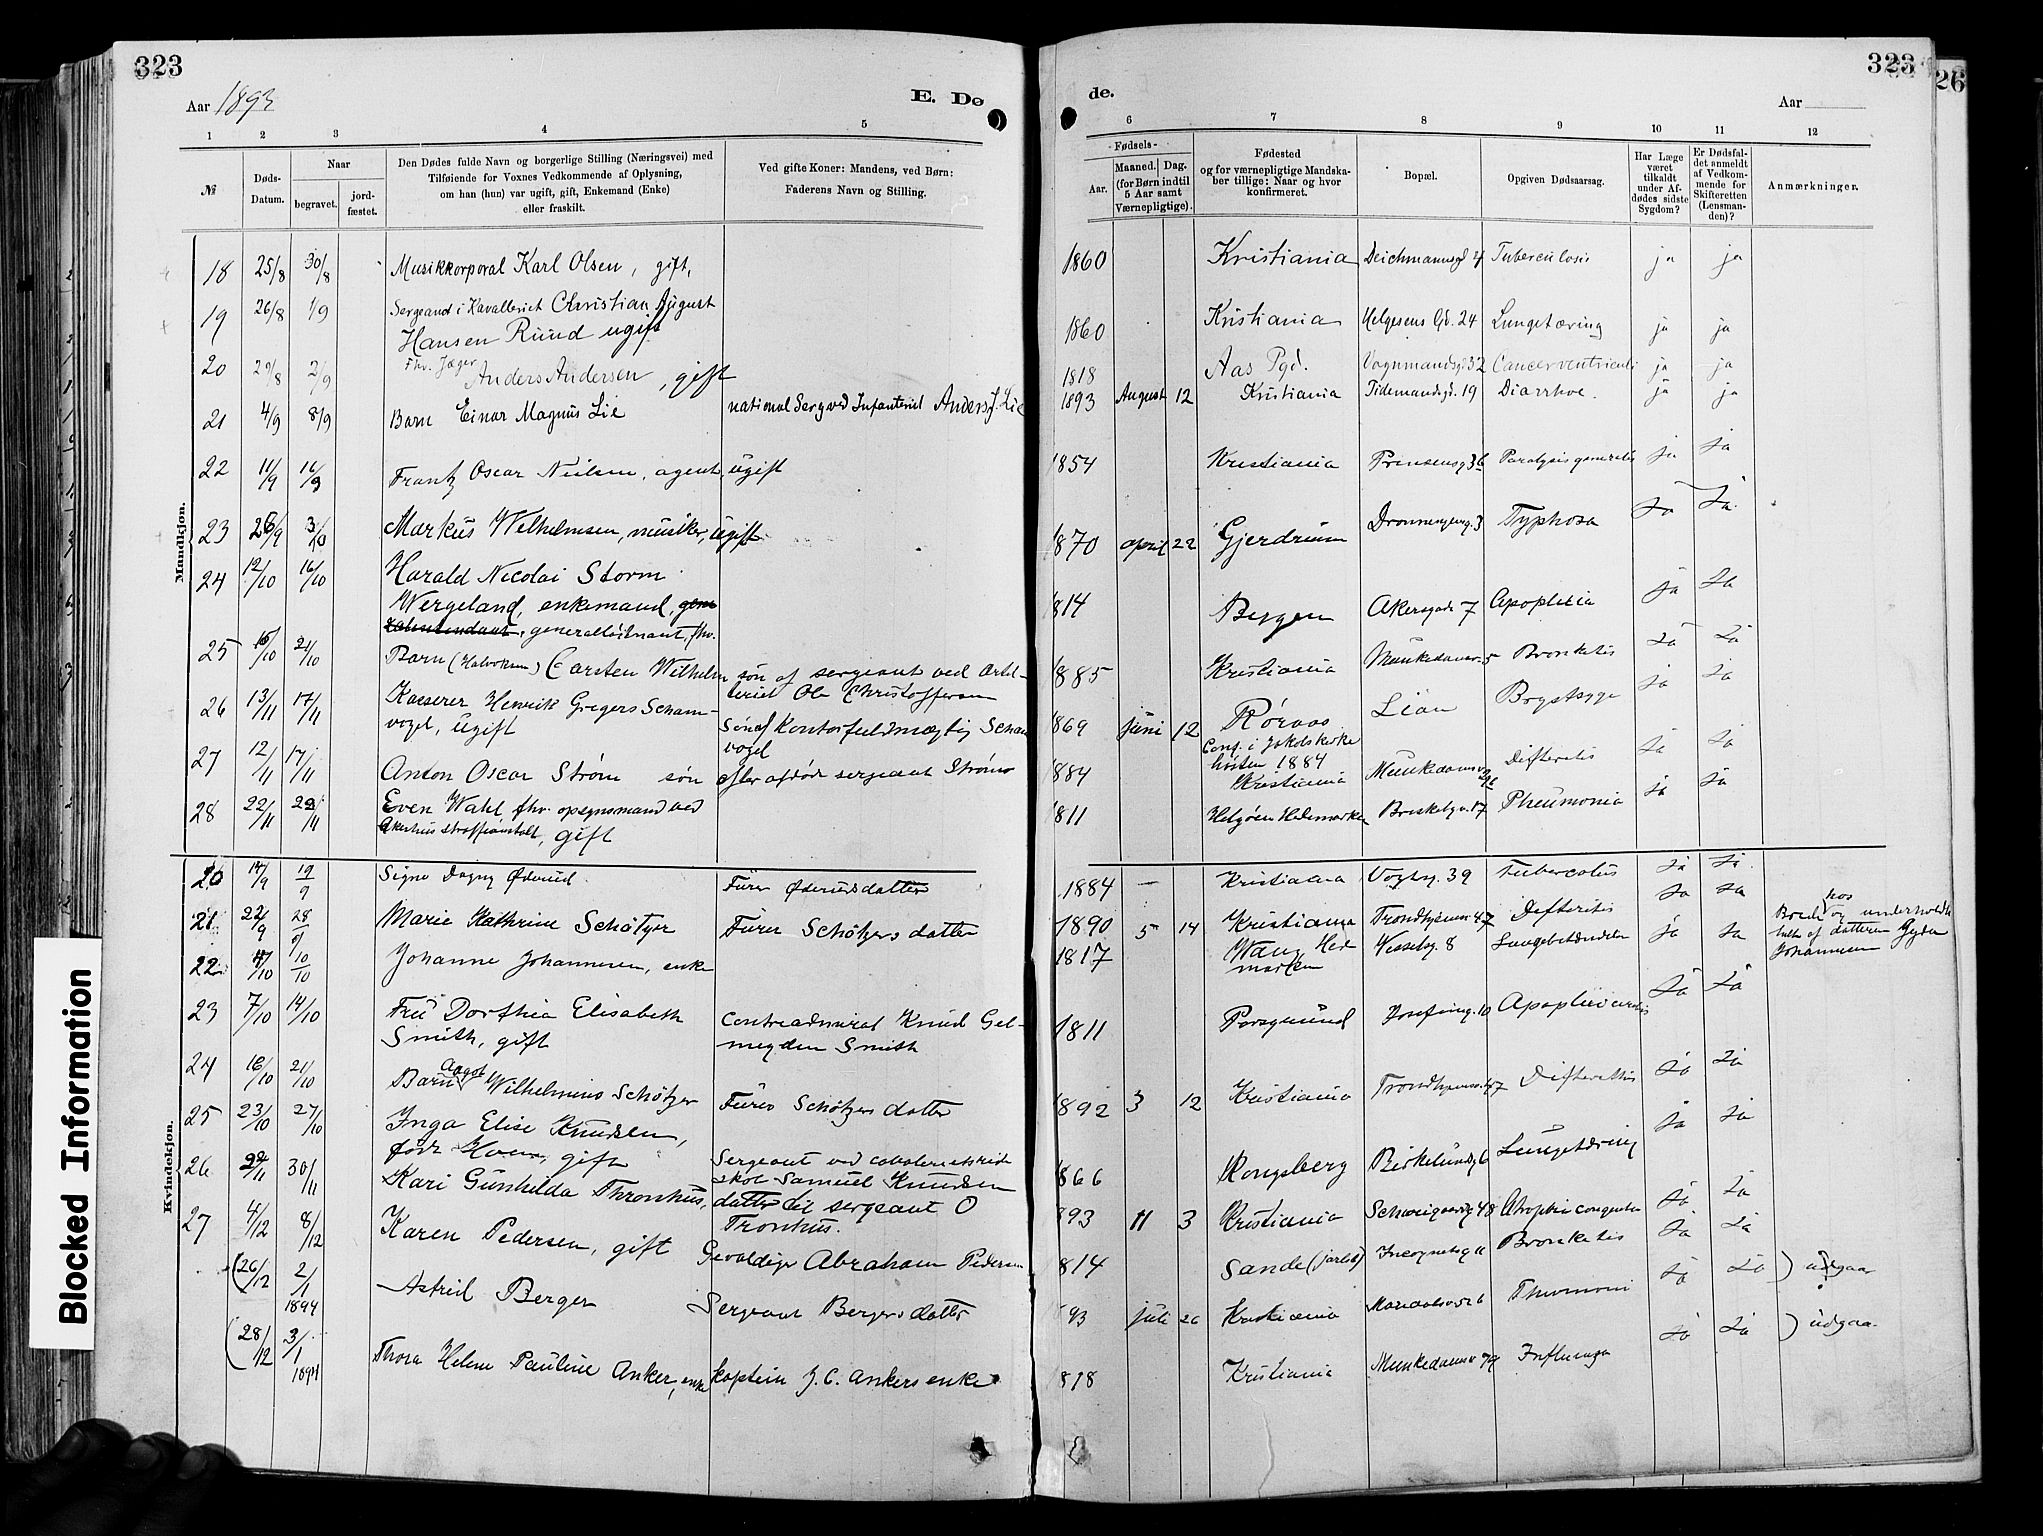 323
Aar 1893
E. Dø
1 2 3 4 5
№
Døds-Datum.
Naar
begravet.
jord-fæstet.
Den Dødes fulde Navn og borgerlige Stilling (Næringsvei) med
Tilføiende for Voxnes Vedkommende af Oplysning,
om han (hun) var ugift, gift, Enkemand (Enke)
eller fraskilt.
Ved gifte Koner: Mandens, ved Børn:
Faderens Navn og Stilling.
Mandkjøn.
18 25/8 30/8 Musikkorporal Karl Olsen, gift,
19 26/8 1/9 Sergeand i Kavalleriet Christian August
Hansen Ruud ugift
20 29/8 2/9 Fhv. Jæger
Anders Andersen, gift
21 4/9 8/9 Barn Einar Magnus Lie national Serg. ved Infanteriet Anders J. Lie
22 11/9 16/9 Frantz Oscar Nielsen, agent, ugift
23 26/9 3/10 Markus Wilhelmsen, musiker, ugift
24 12/10 16/10 Harald Nicolai Storm
Wergeland, enkemand,
generalløitnant, fhv.
25 16/10 21/10 Barn (Halvorsen) Carsten Wilhelm søn af sergeant ved Artil-
leriet Ole Christoffersen
26 13/11 17/11 Kasserer Henrik Gregers Scham-
vogel, ugift
Søn af Kontorfuldmægtig Scham
vogel
27 12/11 17/11 Anton Oscar Strøm søn efter afdøde sergeant Strøm
28 22/11 29/11 Even Wahl fhv. opsynsmand ved
Akershus straffeanstalt, gift
Kvindekjøn.
20 14/9 19/9 Signe Dagny Øderud Furer Øderuds datter
21 22/9 28/9 Marie Kathrine Schøtzer Furer Schøtzers datter
22 4/10 9/10 Johanne Johannesen, enke
23 7/10 14/10 Fru Dorthea Elisabeth
Smith, gift
Contreadmiral Knud Gel-
meyden Smith
24 16/10 21/10 Barn Aagot Wilhelmine Schøtzer Furer Schøtzers datter
25 23/10 27/10 Inga Elise Knudsen,
født Hoen, gift
Sergeant ved cavaleriets ride
skole Samuel Knudsen
26 24/11 30/11 Kari Gunhilda Thronhus, datter til sergeant O
Tronhus.
27 4/12 8/12 Karen Pedersen, gift Gevaldiger Abraham Pedersen
(26/12 2/1 1894 Astrid Berger Sergeant Bergers datter
(28/12 3/1 1894 Thora Helene Pauline Anker, enke kaptein J. C. Ankers enke
323
26
de.
Aar
6 7 8 9 10 11 12
Fødsels-
Aar.
Maaned. Dag.
(for Børn indtil
5 Aar samt
Værnepligtige).
Fødested
og for værnepligtige Mandska-
ber tillige: Naar og hvor
konfirmeret.
Bopæl.
Opgiven Dødsaarsag.
Har Læge
været
tilkaldt
under Af-
dødes sidste
Sygdom?
Er Dødsfal-
det anmeldt
af Vedkom-
mende for
Skifteretten
(Lensman-
den)?
Anmærkninger.
1860 Kristiania Deichmannsgd 4 Tuberculosis ja ja
1860 Kristiania Helgesens Gd. 24 Lungetæring ja ja
1818 Aas Pgd. Vognmandsgd. 32 Cancer ventriculi ja ja
1893 August 12 Kristiania Tidemandsgd. 19 Diarrhoe. ja ja
1854 Kristiania Prinsensg. 36 Paralysis generalis ja ja
1870 april 22 Gjerdrum Dronningensg. 3 Typhosa ja ja
1814 Bergen Akersgade 7 Apoplexia ja ja
1885 Kristiania Munkedamsv. 5 Bronkitis ja ja
1869 juni 12 Røraas
Conf. i Jakobs kirke
høsten 1884
Lian Brystsyge ja ja
1884 Kristiania Munkedamsv Difteritis ja ja
1811 Helgøen Hedemarken Briskebyv. 17 Pneumonia ja ja
1884 — Kristiania Vogtsg. 39 Tubercolus ja ja
1890 5 14 Kristiania Trondhjemsv. 47 Difteritis ja ja
1817 Wang Hed
marken
Wesselsg. 8 Lungebetændelse ja ja
hos
Boede og underholdt
helt af datteren Gyda
Johannesen
1811 Porsgrund Josefinesg. 10 Apoplexia ja ja
1892 3 12 Kristiania Trondhjemsv. 47 Difteritis ja ja
1866 Kongsberg Birkelundsg 6 Lungetæring ja ja
893 11 3 Kristiania Schweigaardsg 48 Atrophia congenita ja ja
814 Sande (Jarlsb) Incognitog 11 Bronkitis ja ja
93 juli 26 Kristiania Maridalsv 26 ja ja ) udgaar
818 Kristiania Munkedamsv 79 Influenza ja ja ) udgaa.
Blocked Information